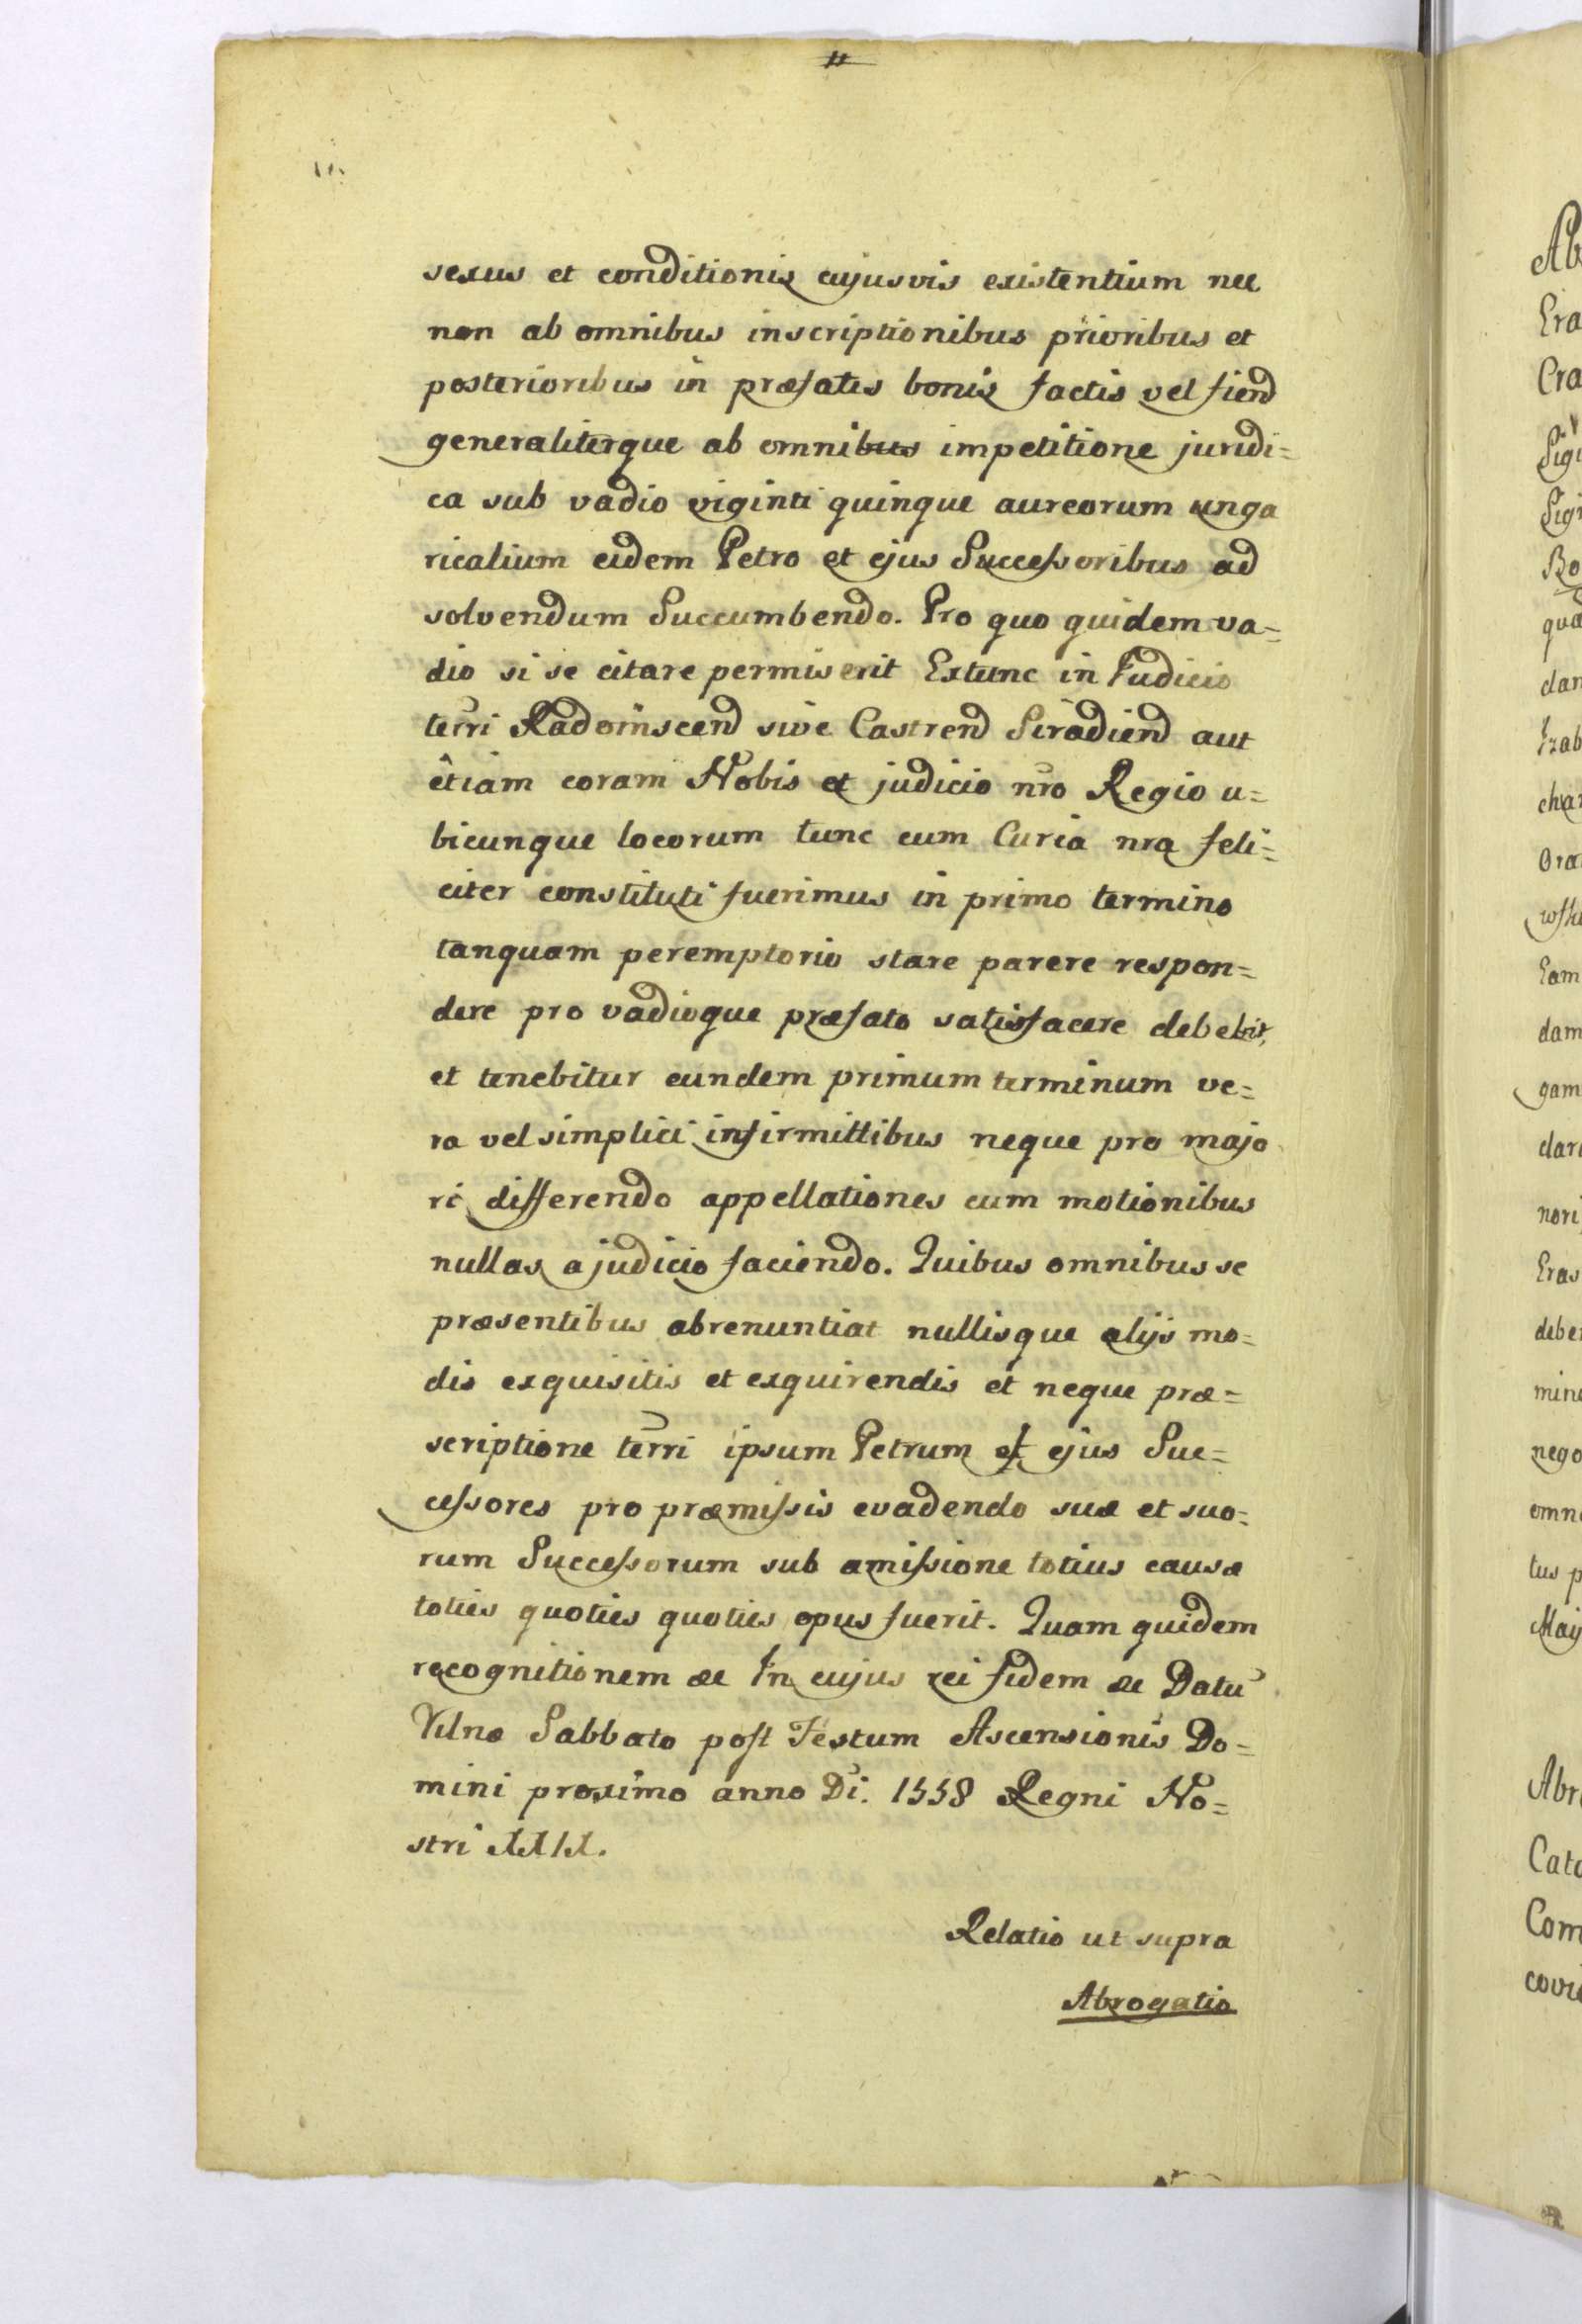 sexus et conditionis cujusvis existentium nec
non ab omnibus inscriptionibus prioribus et
posterioribus in præfatis bonis factis vel fiend
generaliterque ab omnibus impetitione juridi=
ca sub vadio viginti quinque aureorum unga
ricalium eidem Petro et ejus Successoribus ad
solvendum Succumbendo. Pro quo quidem va=
dio si se citare permiserit Extunc in Judicio
terri Radomscend sive Castrend Siradiend aut
etiam coram Nobis et judicio nro Regio u=
bicunque locorum tunc cum Curia nra feli=
citer constituti fuerimus in primo termino
tanquam peremptorio stare parere respon=
dere pro vadioque præfato satisfacere debebit,
et tenebitur eundem primum terminum ve=
ra vel simplici infirmittibus neque pro majo
ri differendo appellationes cum motionibus
nullas a judicio faciendo. Quibus omnibus se
præsentibus abrenuntiat nullisque alijs mo=
dis exquisitis et exquirendis et neque præ=
scriptione terri ipsum Petrum et ejus Suc=
cessores pro præmissis evadendo suæ et suo=
rum Successorum sub amissione totius causæ
toties quoties quoties opus fuerit. Quam quidem
recognitionem &c In cujus rei fidem &c Datu
Vilnæ Sabbato post Festum Ascensionis Do=
mini proximo anno Di. 1558 Regni No=
stri
Relatio ut supra
Abrogatio
Ab
Era
Cra
Sigi
Sigi
Bo
qua
dan
char
Ora
wsk
Eam
dam
gam
dar
nori
Eras
deber
mine
nego
omn
tus p
Maij
Abr
Cat
Com
covi